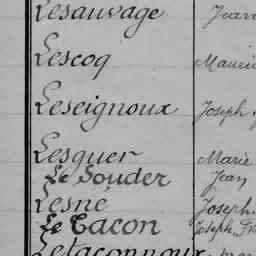 Lesauvage Jean
Lescoq Maurice
Leseignoux Joseph
Lesquer Marie
Le Souder Jean
Lesné Joseph
Le Tacon Joseph
Letaconnoux